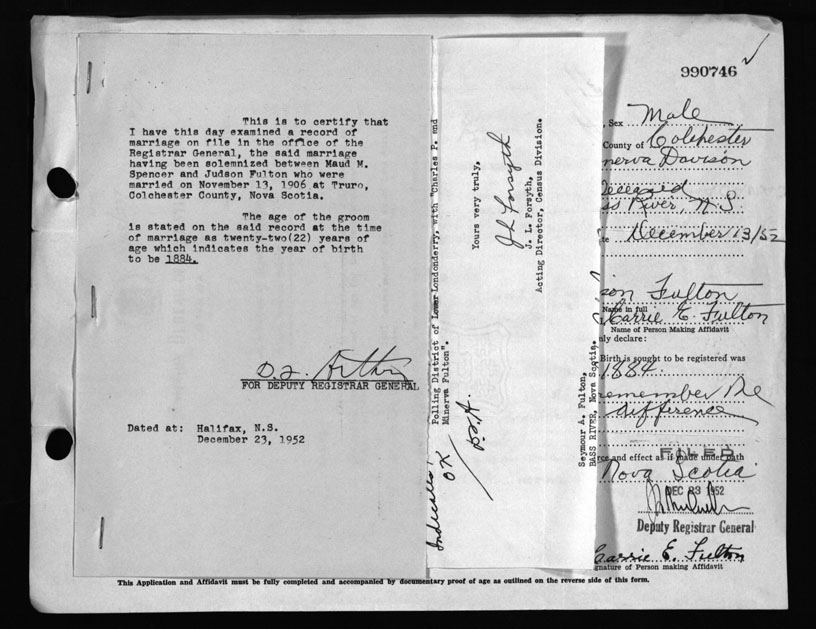 990746
This is to certify that
I have this day examined a record of
marriage on file in the office of the
Registrar General, the said marriage
having been solemnized between Maud M.
Spencer and Judson Fulton who were
married on November 13, 1906 at Truro,
Colchester County, Nova Scotia.
The age of the groom
is stated on the said record at the time
of marriage as twenty-two(22) years of
age which indicates the year of birth
to be 1884.
FOR DEPUTY REGISTRAR GENERAL
Dated at: Halifax, N.S.
December 23, 1952
Polling District of Lower Londonderry, with "Charles F. and
Minerva Fulton".
Indicates!
OK
Yours very truly,
J L Forsyth
J. L. Forsyth,
Acting Director, Census Division.
Seymour A. Fulton,
BASS RIVER, Nova Scotia.
Sex Male
County of Colchester
nerva Davison
Deceased
ss River, N.S.
December 13/52
son Fulton
Name in full
Carrie E. Fulton
Name of Person Making Affidavit
ly declare:
Birth is sought to be registered was
1884.
remember the
difference
rce and effect as if made under oath
FILED
Nova Scotia
DEC 23 1952
Deputy Registrar General
Carrie E. Fulton
gnature of Person making Affidavit
This Application and Affidavit must be fully completed and accompanied by documentary proof of age as outlined on the reverse side of this form.